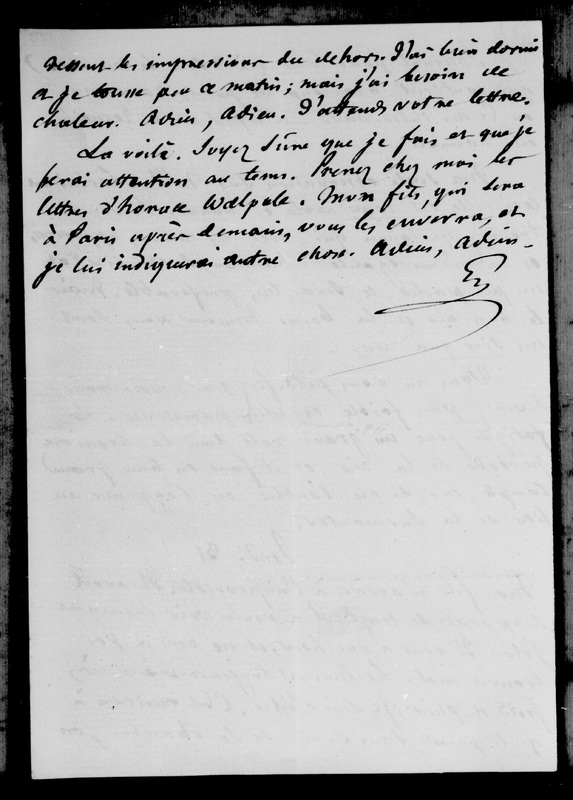 dessous les impressions du dehors. J'ai bien dormi
et je tousse peu ce matin; mais j'ai besoin de
chaleur. Adieu, Adieu. J'attends votre lettre.
La voilà. Soyez sûre que je fais et que je
ferai attention au tems. Prenez chez moi les
lettres d'horace Walpole. Mon fils, qui sera
à Paris après demain, vous les enverra, et
je lui indiquerai autre chose. Adieu, Adieu.